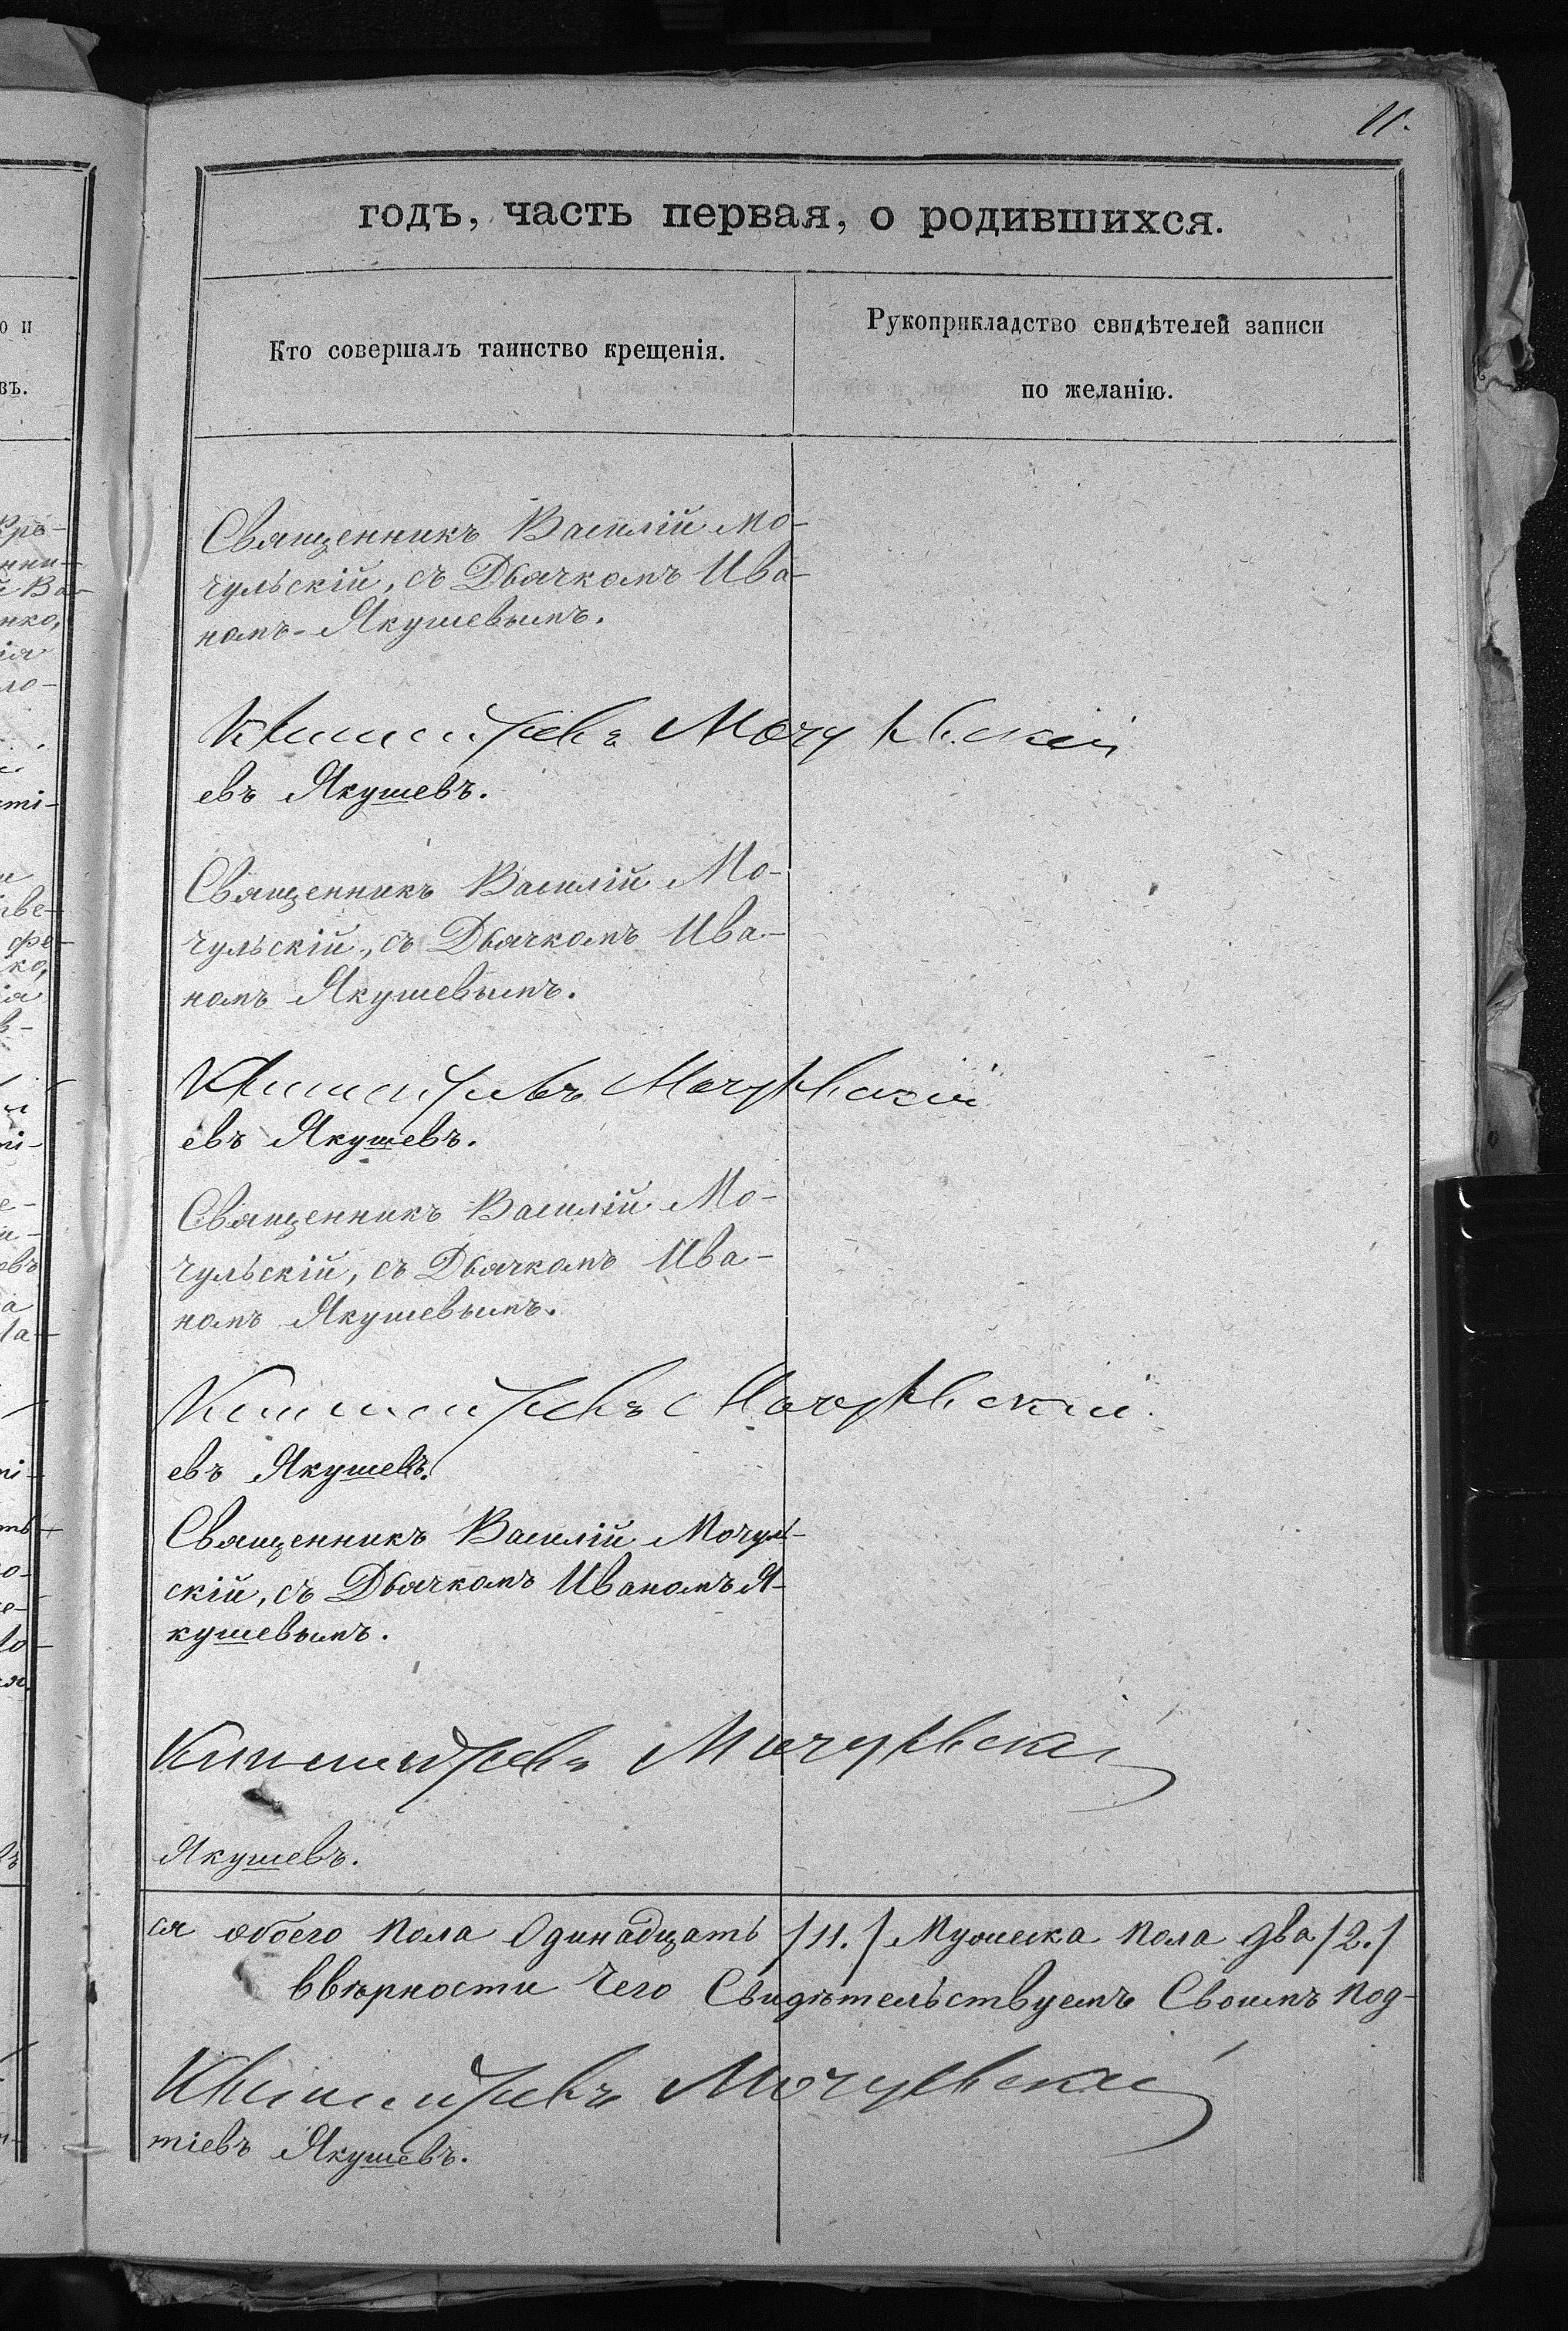 11.
годъ, часть первая, о родившихся.
Кто совершалъ таинство крещенія.
Рукоприкладство свидѣтелей записи
по желанію.
Священникъ Василій Мо-
чульскій, съ Дьячкомъ Ива-
номъ Якушевымъ.
Мочульскій
евъ Якушевъ.
Священникъ Василій Мо-
чульскій, съ Дьячкомъ Ива-
номъ Якушевымъ.
Мочульскій
евъ Якушевъ.
Священникъ Василій Мо-
чульскій, съ Дьячкомъ Ива-
номъ Якушевымъ.
Мочульскій
евъ Якушевъ.
Священникъ Василій Мочуль-
скій, съ Дьячкомъ Иваномъ Я-
кушевымъ.
Мочульскій
Якушевъ.
ся обоего пола Одинадцать /11./ Мужеска пола два /2./
ввѣрности чего Свидѣтельствуемъ Своимъ под-
Мочульскій
тіевъ Якушевъ.